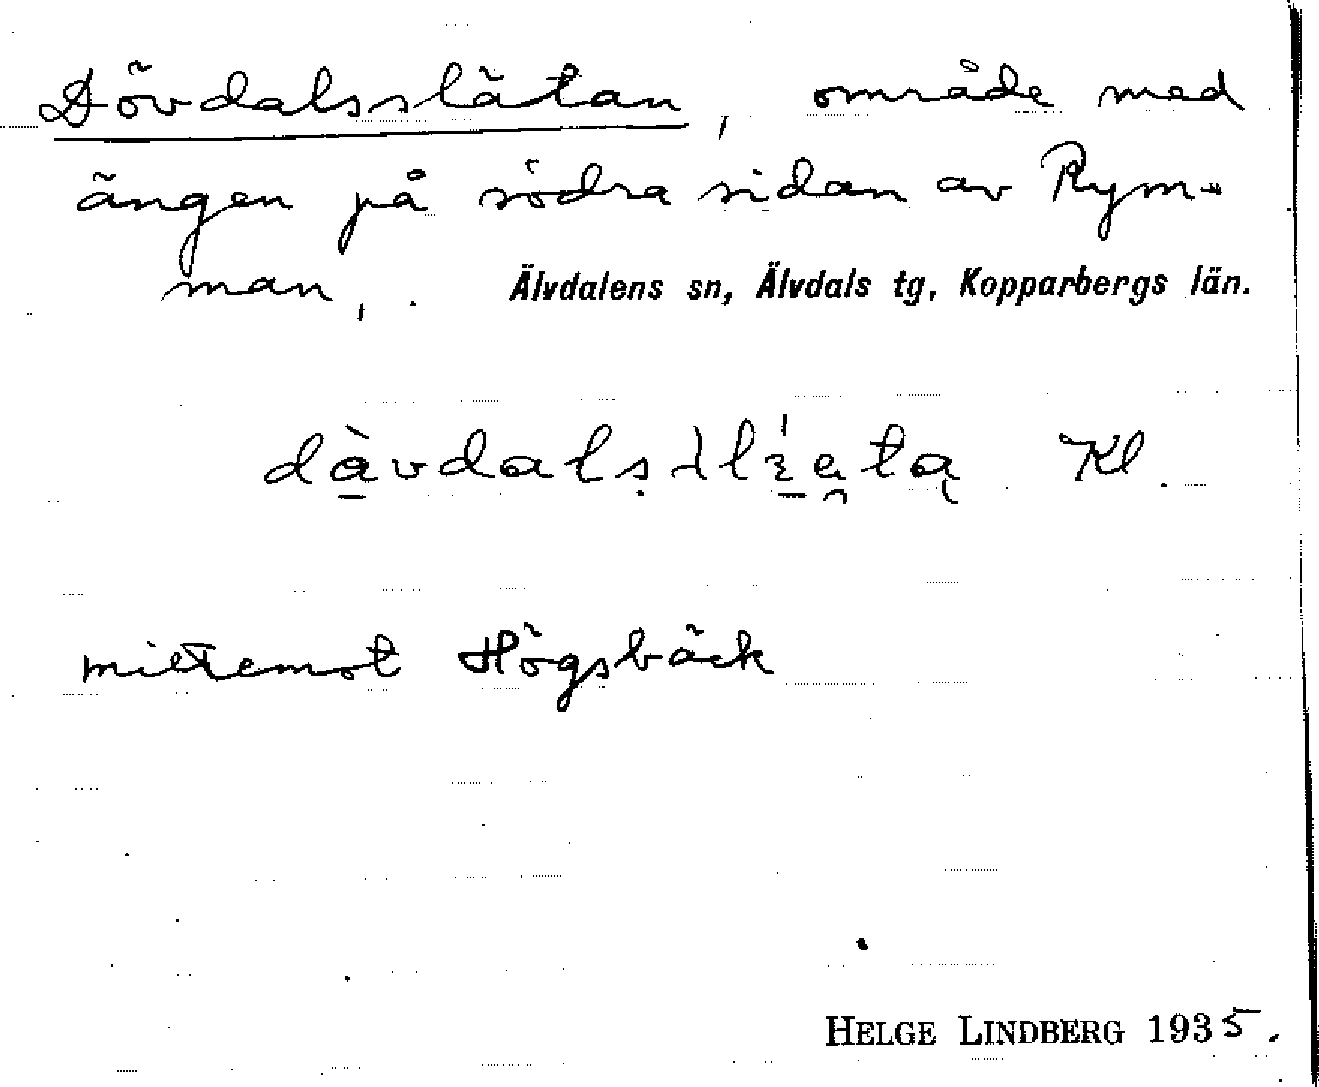 Dövdalsslätan, område med
ängen på södra sidan av Rym-
man, . Älvdalens sn, Älvdals tg, Kopparbergs län.
Kl.
mittemot Högsbäck
HELGE LINDBERG 1935.